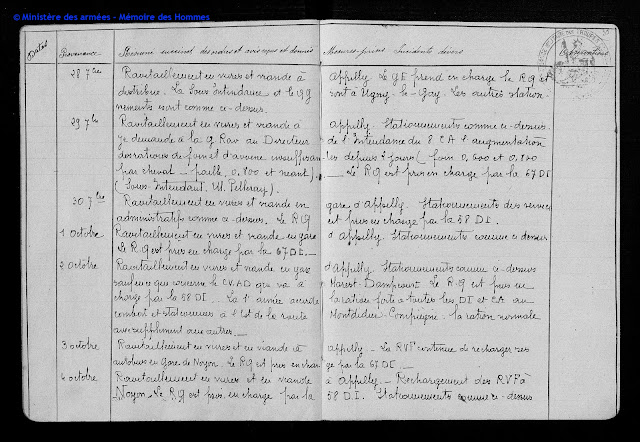 © Ministère des armées - Mémoire des Hommes
Dates Provenance Résumé succinct des ordres et avis reçus et donnés Mesures prises Incidents divers Observations
28 7bre Ravitaillement en vivres et viande à Appilly. Le GE prend en charge le RQ et
distribue. La Sous Intendance et le QG sont à Ugny-le-Gay. Les autres station-
nements sont comme ci-dessus.
29 7bre Ravitaillement en vivres et viande à Appilly. Stationnements comme ci-dessus.
Je demande à la G Rav au Directeur de l'Intendance du 8 CA l'augmentation
des rations de foin et d'avoine insuffisan- tes depuis 2 jours ( foin 0,600 et 0,800
par cheval - paille, 0,800 et néant). Le RQ est pris en charge par la 67 DI
(Sous-Intendant. M. Pelleray).
30 7bre Ravitaillement en vivres et viande en gare d'Appilly. Stationnements des services
administratifs comme ci-dessus. Le RQ est pris en charge par la 58 D.I.
1 Octobre Ravitaillement en vivres et viande en gare d'Appilly. Stationnements comme ci-dessus
Le RQ est pris en charge par la 67 DI.
2 Octobre Ravitaillement en vivres et viande en gare d'Appilly. Stationnements comme ci-dessus
sauf en ce qui concerne le CVAD qui va à Marest-Dampcourt. Le RQ est pris en
charge par la 58 DI. La 1e armée accorde la ration forte à toutes les DI et CA au
combat et stationnées à l'Est de la route Montdidier-Compiègne - la ration normale
avec supplément aux autres.
3 octobre Ravitaillement en vivres et en viande à Appilly. - La RVF continue de recharger ses
autobus en Gare de Noyon. Le RQ est pris en char- ge par la 67 DI.
4 octobre Ravitaillement en vivres et en viande à Appilly. - Rechargement des RVF à
Noyon. Le RQ est pris en charge par la 58 D.I. Stationnements comme ci-dessus